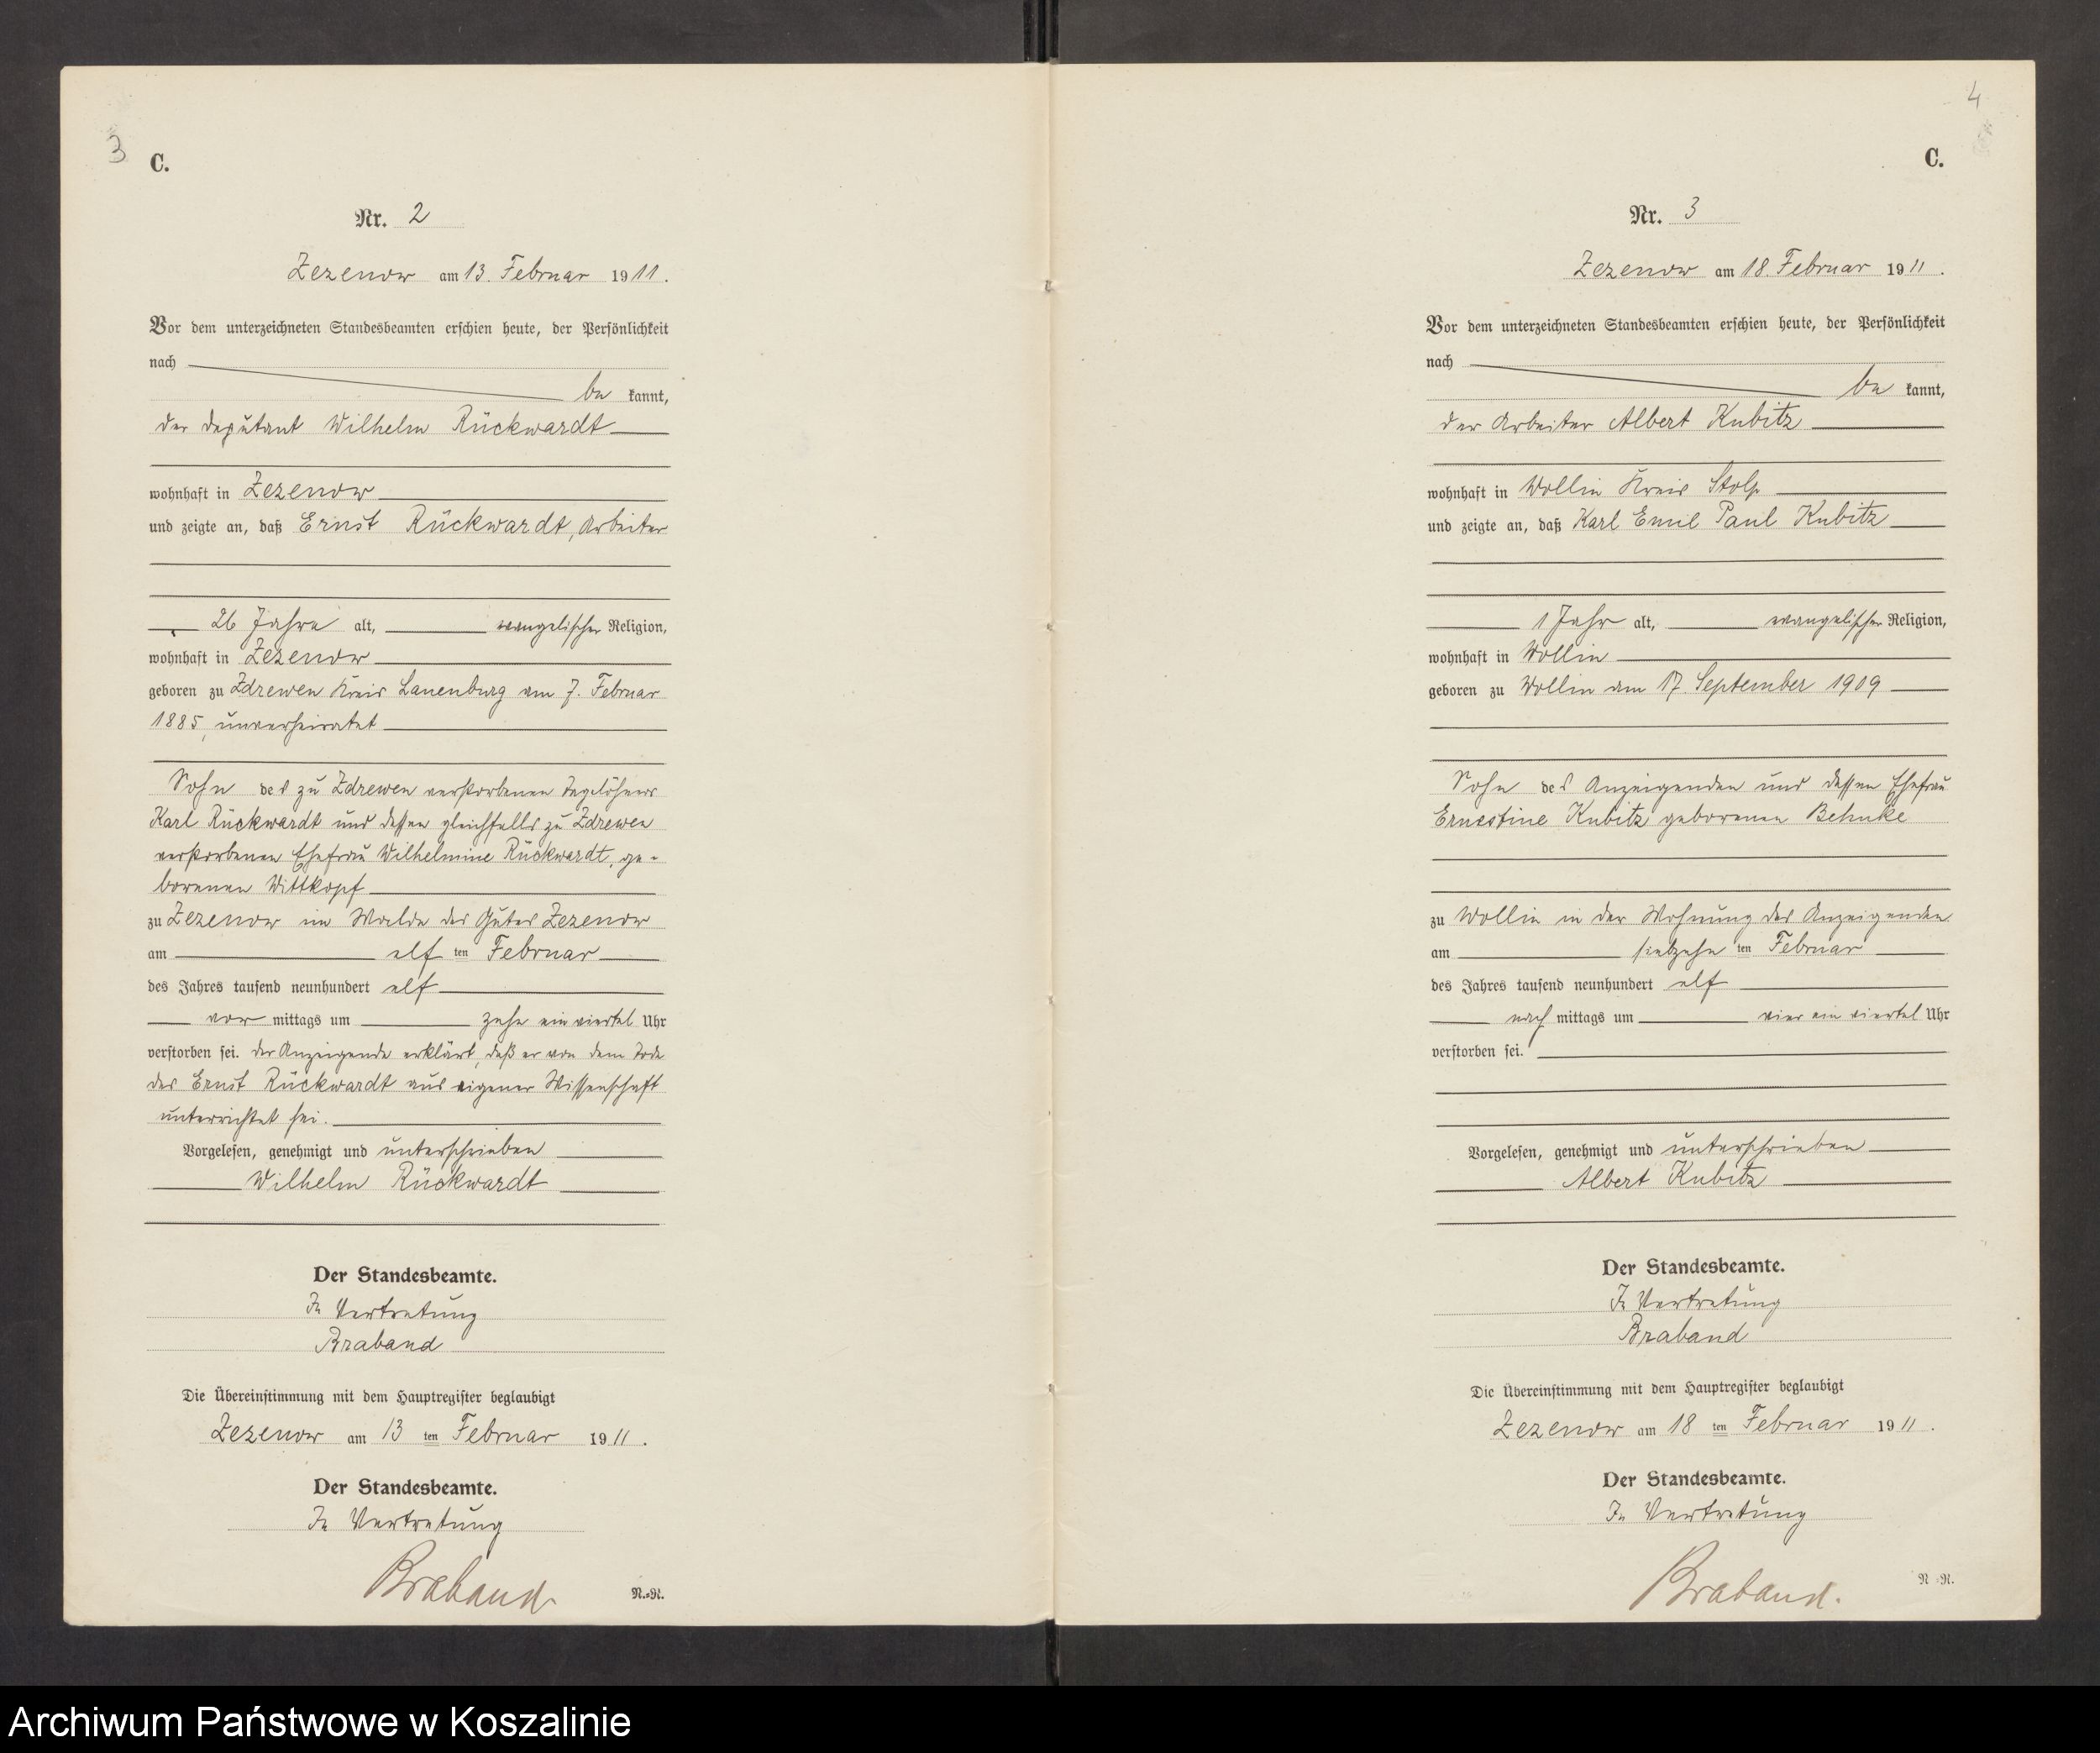 3
C.
Nr. 2
Zezenow am 13. Februar 1911.
Vor dem unterzeichneten Standesbeamten erschien heute, der Persönlichkeit
nach
be kannt,
der Deputant Wilhelm Rückwardt
wohnhaft in Zezenow
und zeigte an, daß Ernst Rückwardt, Arbeiter
26 Jahre alt, evangelischer Religion,
wohnhaft in Zezenow
geboren zu Zdrewen Kreis Lauenburg am 7. Februar
1885, unverheiratet
Sohn des zu Zdrewen verstorbenen Tagelöhners
Karl Rückwardt und dessen gleichfalls zu Zdrewen
verstorbenen Ehefrau Wilhelmine Rückwardt, ge-
borenen Wittkopf
zu Zezenow im Walde des Gutes Zezenow
am elf ten Februar
des Jahres tausend neunhundert elf
vor mittags um zehn ein viertel Uhr
verstorben sei. Der Anzeigende erklärt, daß er von dem Tode
des Ernst Rückwardt aus eigener Wissenschaft
unterrichtet sei.
Vorgelesen, genehmigt und unterschrieben
Wilhelm Rückwardt
Der Standesbeamte.
In Vertretung
Braband
Die Übereinstimmung mit dem Hauptregister beglaubigt
Zezenow am 13 ten Februar 1911.
Der Standesbeamte.
In Vertretung
Braband.
N.=R.
4
C.
Nr. 3
Zezenow am 18. Februar 1911.
Vor dem unterzeichneten Standesbeamten erschien heute, der Persönlichkeit
nach
be kannt,
der Arbeiter Albert Kubitz
wohnhaft in Wollin Kreis Stolp
und zeigte an, daß Karl Emil Paul Kubitz
1 Jahr alt, evangelischer Religion,
wohnhaft in Wollin
geboren zu Wollin am 17. September 1909
Sohn des Anzeigenden und dessen Ehefrau
Ernestine Kubitz geborenen Behnke
zu Wollin in der Wohnung des Anzeigenden
am siebzehn ten Februar
des Jahres tausend neunhundert elf
nach mittags um vier ein viertel Uhr
verstorben sei.
Vorgelesen, genehmigt und unterschrieben
Albert Kubitz
Der Standesbeamte.
In Vertretung
Braband
Die Übereinstimmung mit dem Hauptregister beglaubigt
Zezenow am 18 ten Februar 1911.
Der Standesbeamte.
In Vertretung
Braband.
N.=R.
Archiwum Państwowe w Koszalinie